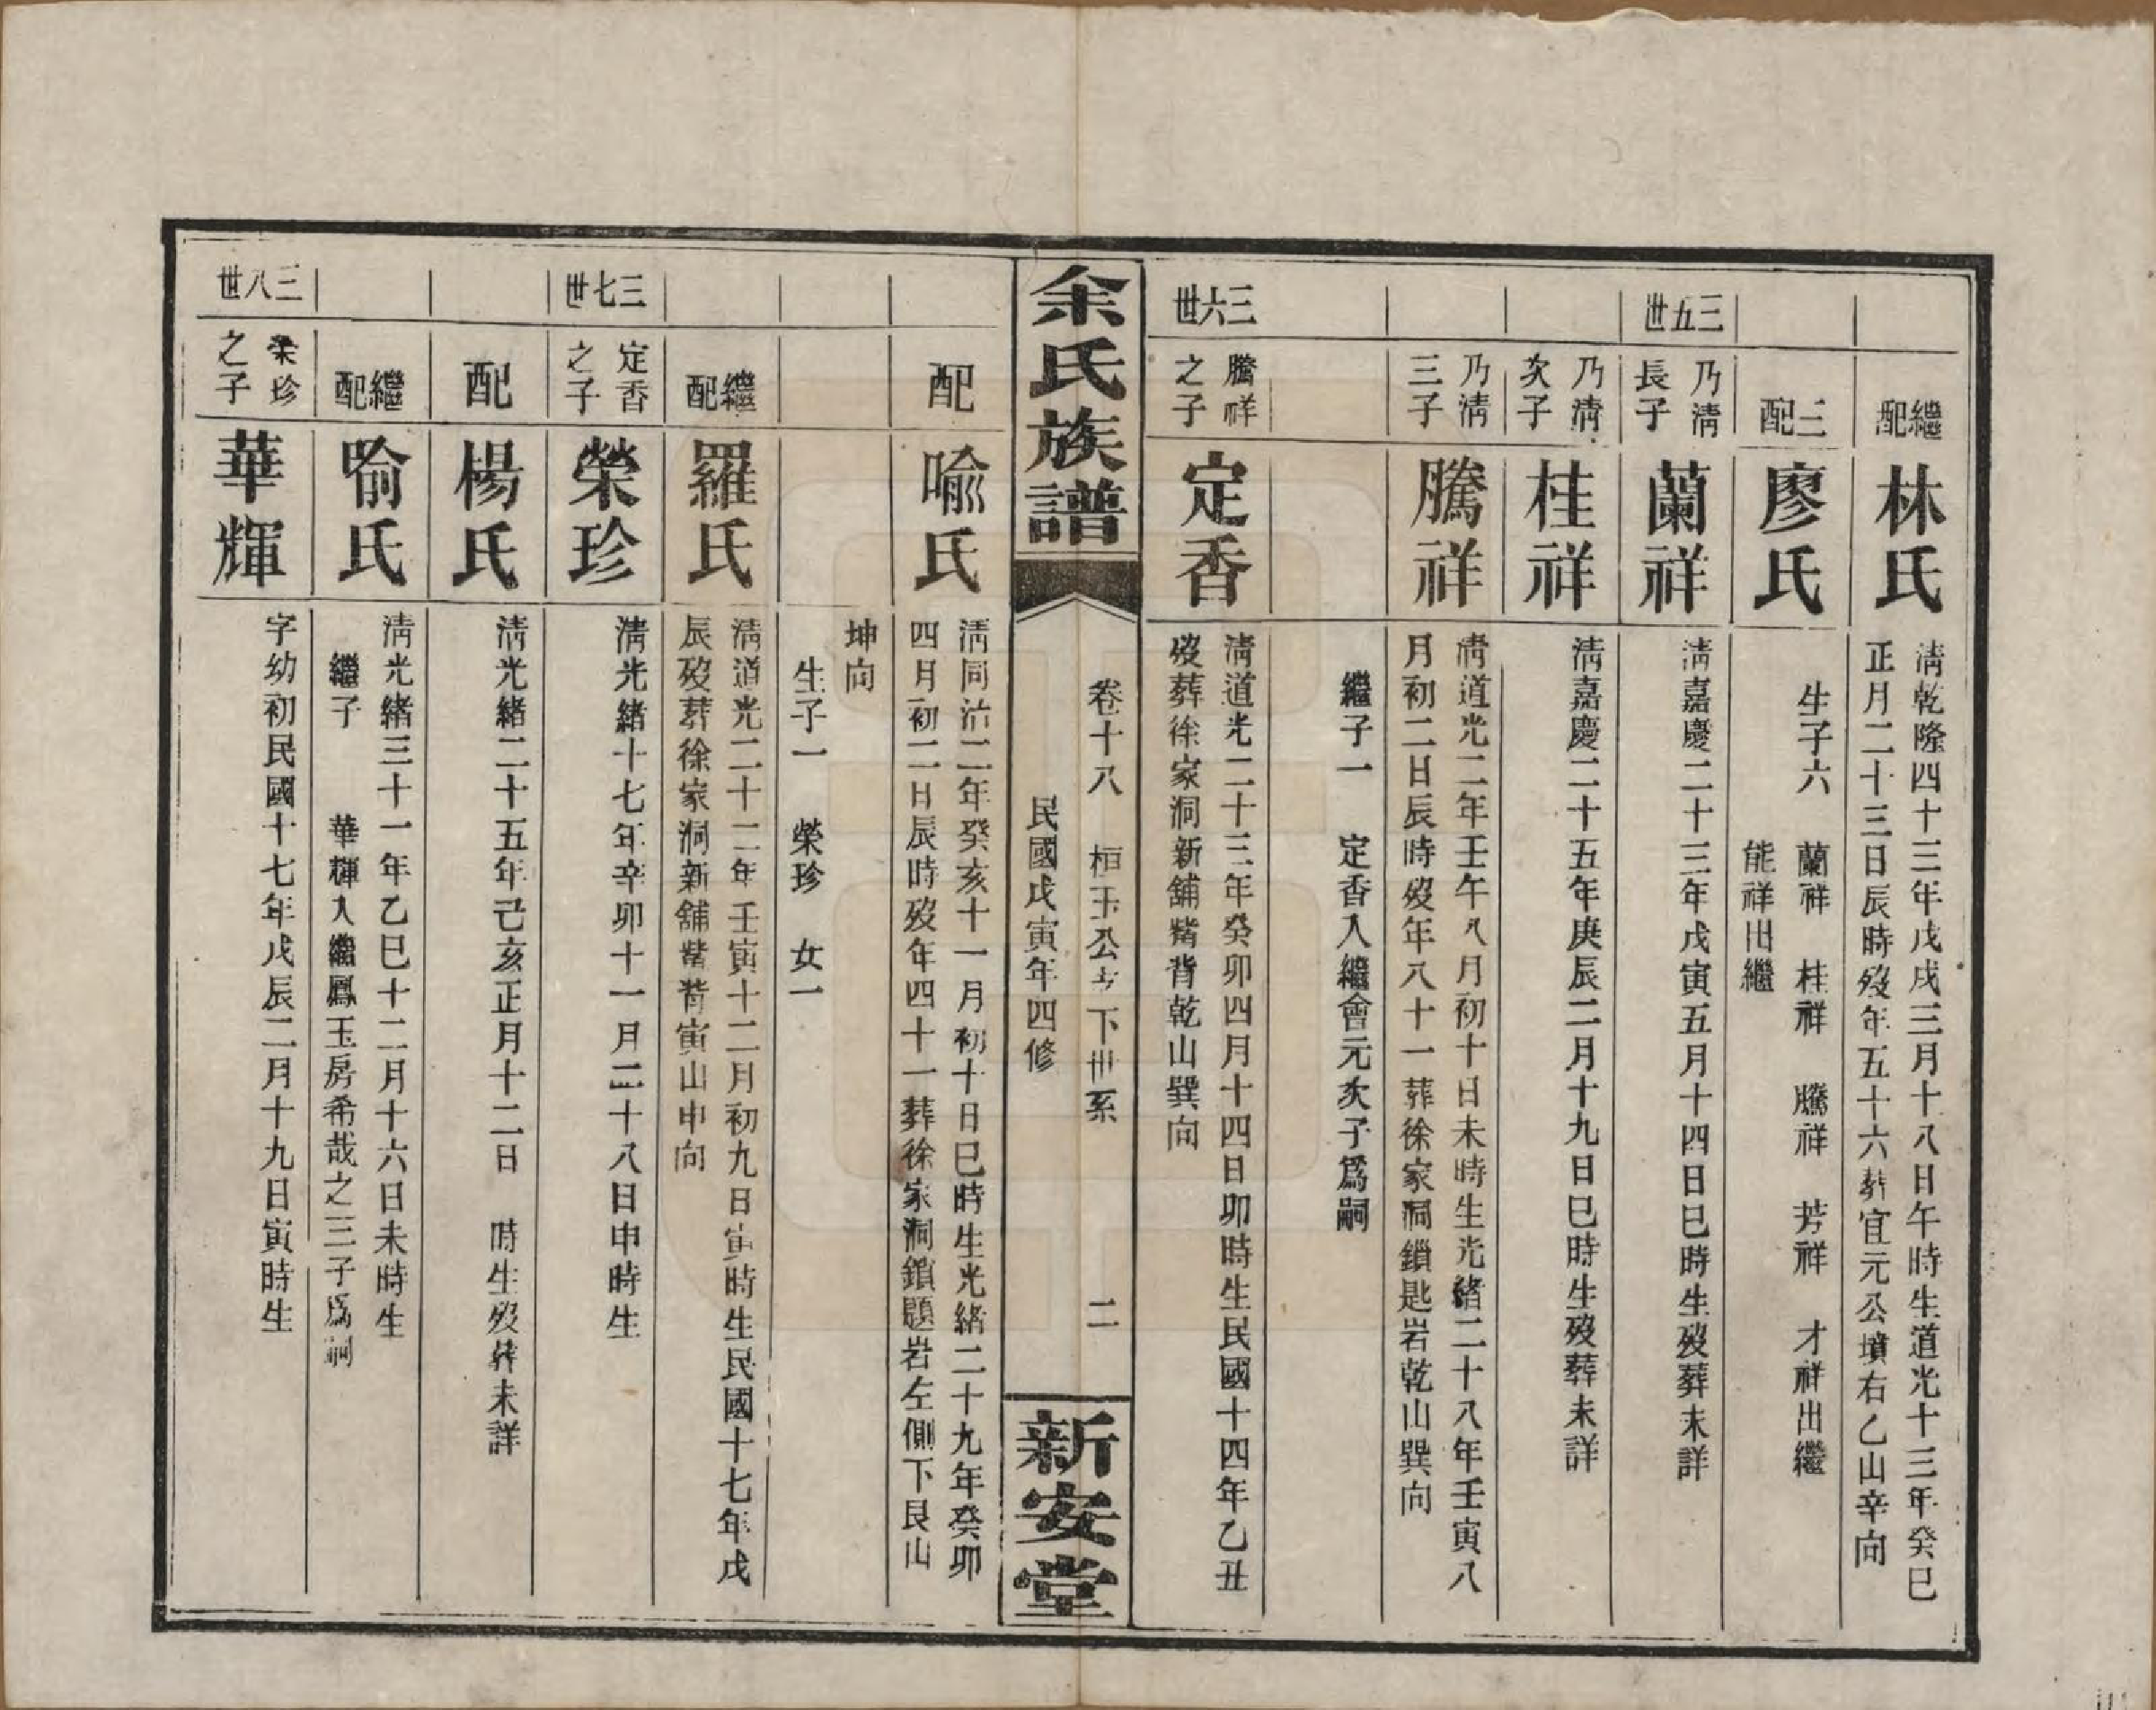 繼配
林氏
清乾隆四十三年戊戌三月十八日午時生道光十三年癸巳
正月二十三日辰時歿年五十六葬宜元公墳右乙山辛向
三配
廖氏
生子六　蘭祥　桂祥　騰祥　芳祥　才祥出繼
能祥出繼
三五世
乃清
長子
蘭祥
清嘉慶二十三年戊寅五月十四日巳時生歿葬未詳
乃清
次子
桂祥
清嘉慶二十五年庚辰二月十九日巳時生歿葬未詳
乃清
三子
騰祥
清道光二年壬午八月初十日未時生光緒二十八年壬寅八
月初二日辰時歿年八十一葬徐家洞鎖匙岩乾山巽向
繼子一　定香入繼會元次子爲嗣
三六世
騰祥
之子
定香
清道光二十三年癸卯四月十四日卯時生民國十四年乙丑
歿葬徐家洞新舖背乾山巽向
余氏族譜
卷十八　桓玉公支下世系　二
民國戊寅年四修
新安堂
配
喻氏
清同治二年癸亥十一月初十日巳時生光緒二十九年癸卯
四月初二日辰時歿年四十一葬徐家洞鎖題岩左側下艮山
坤向
生子一　榮珍　女一
繼配
羅氏
清道光二十二年壬寅十二月初九日寅時生民國十七年戊
辰歿葬徐家洞新舖背寅山申向
三七世
定香
之子
榮珍
清光緒十七年辛卯十一月二十八日申時生
配
楊氏
清光緒二十五年己亥正月十二日　時生歿葬未詳
繼配
喻氏
清光緒三十一年乙巳十二月十六日未時生
繼子　華輝入繼鳳玉房希哉之三子爲嗣
三八世
榮珍
之子
華輝
字幼初民國十七年戊辰二月十九日寅時生